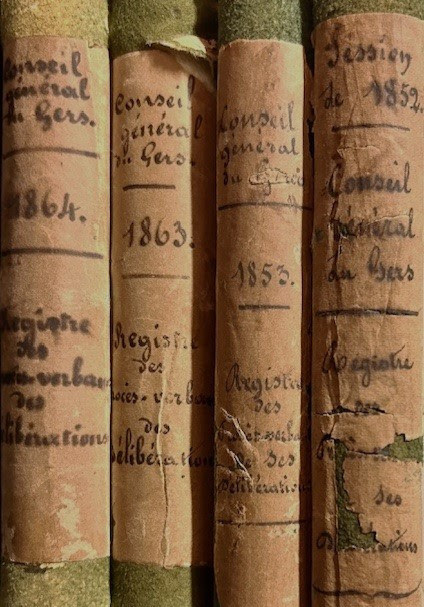 Conseil
général
du Gers.
1864.
Registre
des
Procès-verbaux
des
Délibérations
Conseil
général
du Gers.
1863.
Registre
des
Procès-verbaux
des
Délibérations
Conseil
général
du Gers
1853.
Registre
des
Procès-verbaux
et des
Délibérations
Session
de 1852.
Conseil
Général
du Gers
Registre
des
des
Délibérations